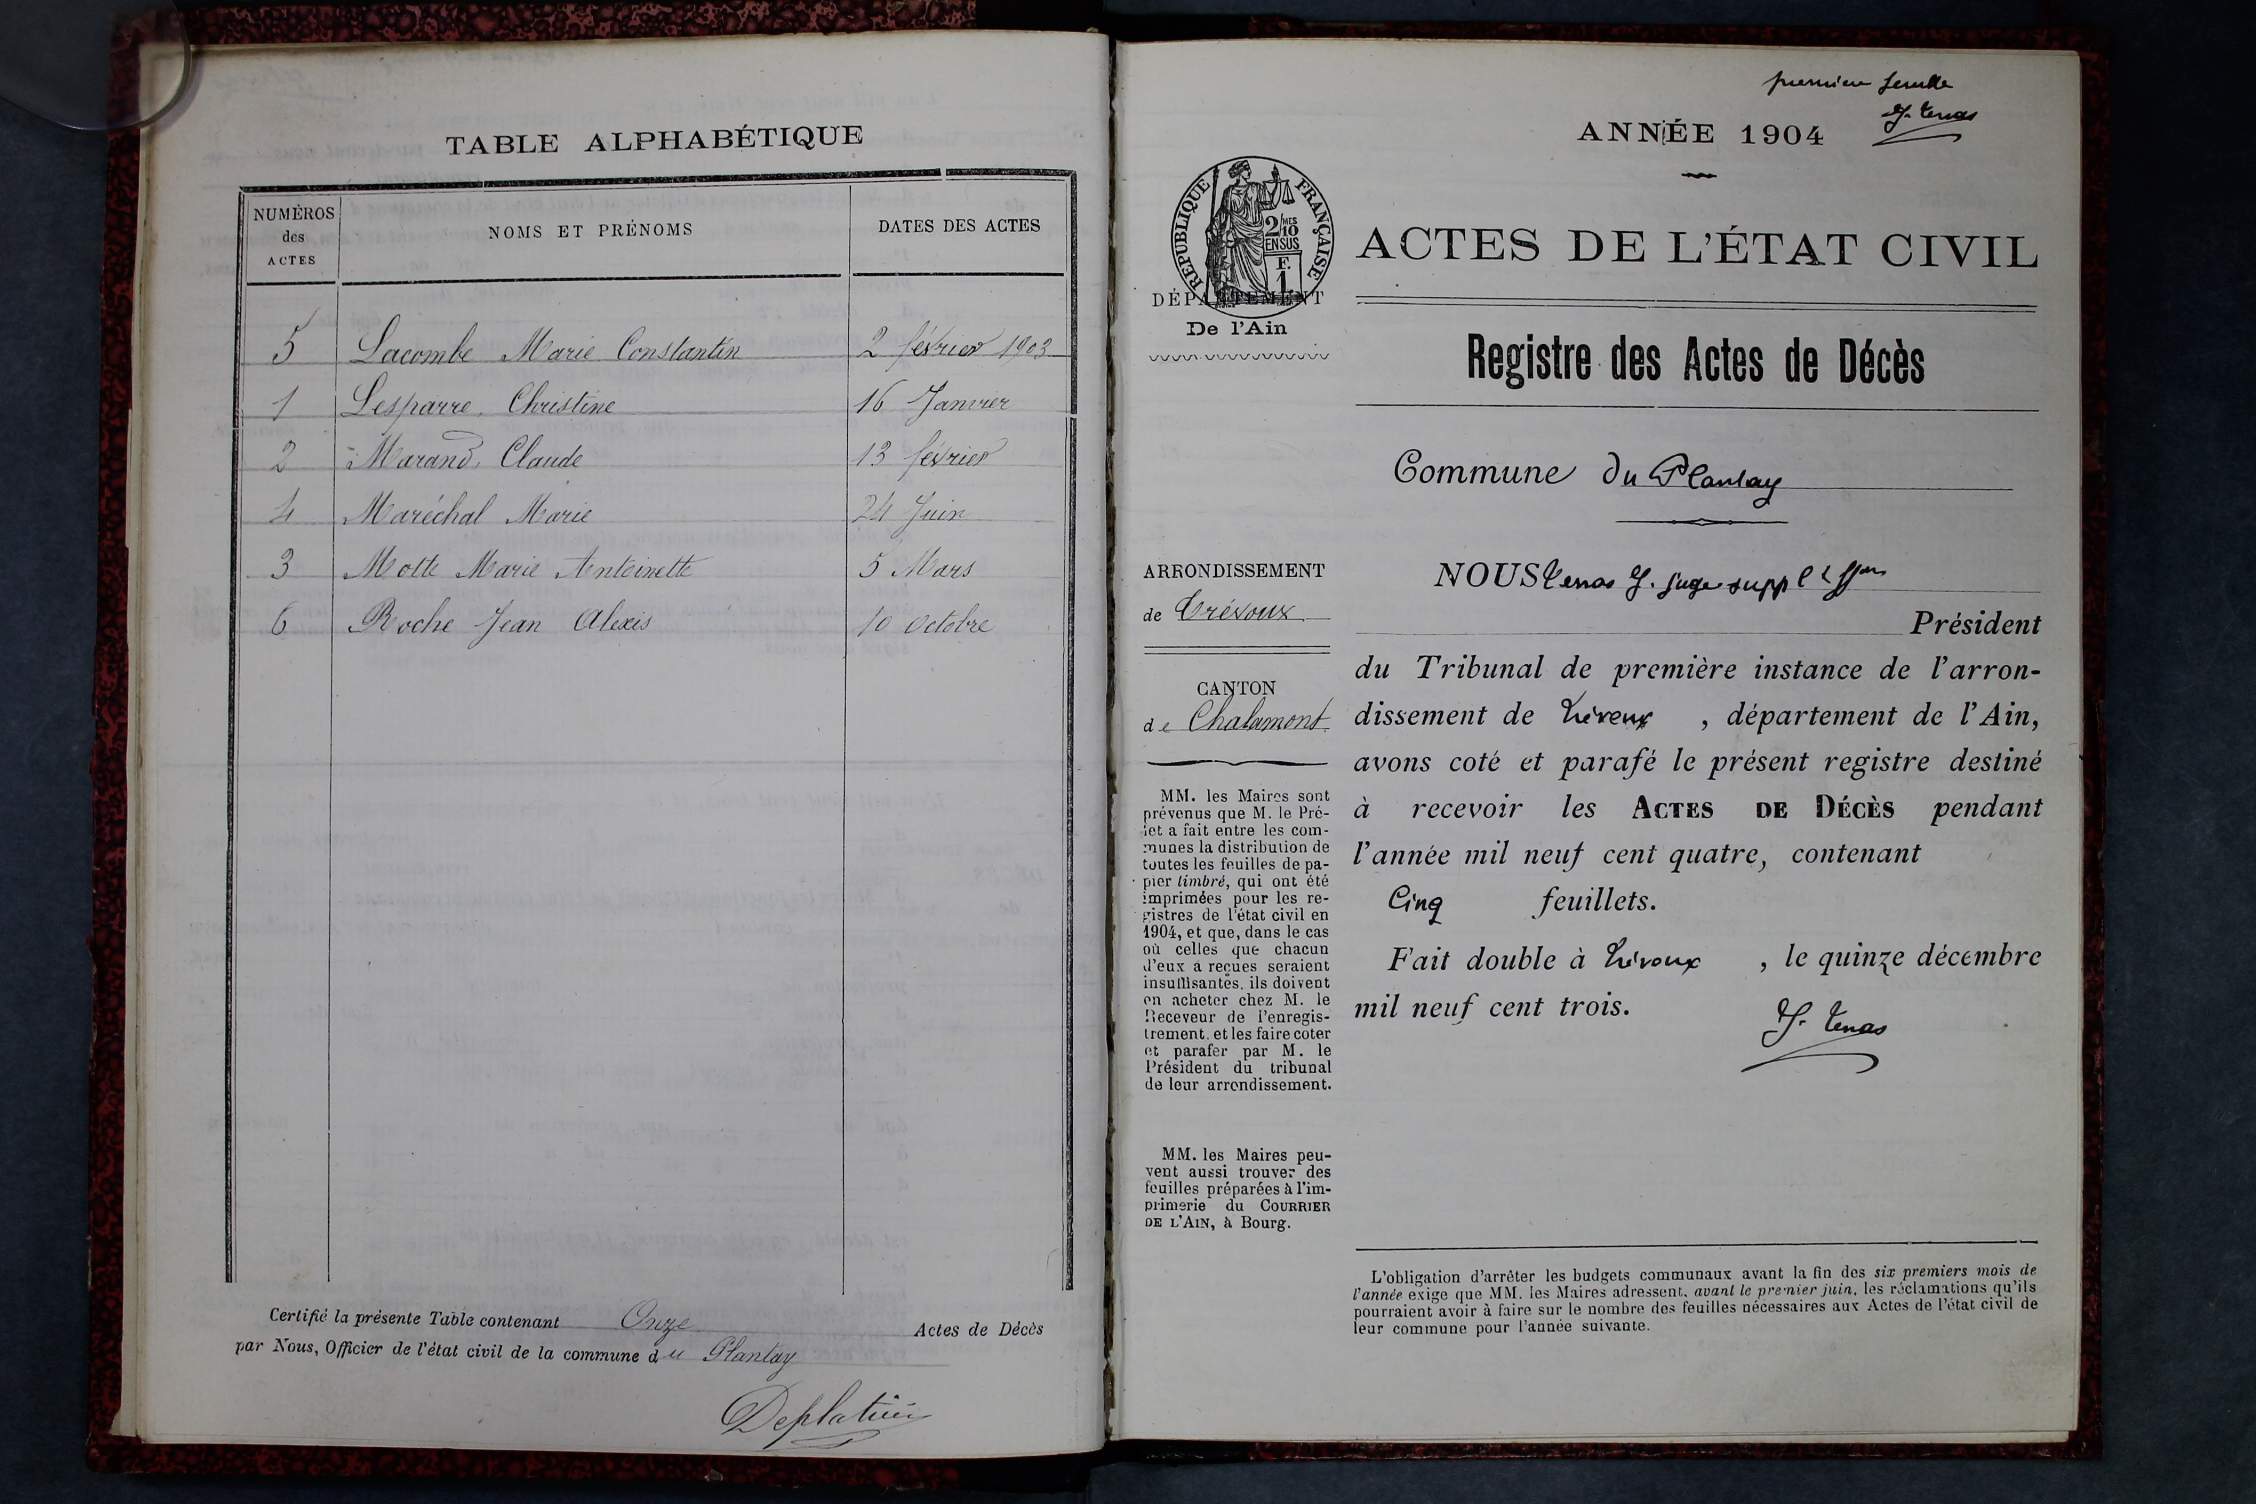 TABLE ALPHABÉTIQUE
NUMÉROS
des
ACTES
NOMS ET PRÉNOMS
DATES DES ACTES
5 Lacombe Marie Constantin 2 février 1903
1 Lesparre Christine 16 Janvier
2 Marand Claude 13 février
4 Maréchal Marie 24 Juin
3 Motte Marie Antoinette 5 Mars
6 Roche Jean Alexis 10 Octobre
Certifié la présente Table contenant Onze Actes de Décès
par Nous, Officier de l'état civil de la commune du Plantay
première feuille
J. Tenas
ANNÉE 1904
RÉPUBLIQUE FRANÇAISE
2/10 MES
EN SUS
F.
1
DÉPARTEMENT
De l'Ain
ACTES DE L'ÉTAT CIVIL
Registre des Actes de Décès
Commune du Plantay
ARRONDISSEMENT
de Trévoux
CANTON
de Chalamont
MM. les Maires sont
prévenus que M. le Pré-
fet a fait entre les com-
munes la distribution de
toutes les feuilles de pa-
pier timbré, qui ont été
imprimées pour les re-
gistres de l'état civil en
1904, et que, dans le cas
où celles que chacun
d'eux a reçues seraient
insuffisantes, ils doivent
en acheter chez M. le
Receveur de l'enregis-
trement, et les faire coter
et parafer par M. le
Président du tribunal
de leur arrondissement.
MM. les Maires peu-
vent aussi trouver des
feuilles préparées à l'im-
primerie du COURRIER
DE L'AIN, à Bourg.
NOUS Tenas J. juge suppl
Président
du Tribunal de première instance de l'arron-
dissement de Trévoux, département de l'Ain,
avons coté et parafé le présent registre destiné
à recevoir les ACTES DE DÉCÈS pendant
l'année mil neuf cent quatre, contenant
Cinq feuillets.
Fait double à Trévoux, le quinze décembre
mil neuf cent trois.
J. Tenas
L'obligation d'arrêter les budgets communaux avant la fin des six premiers mois de
l'année exige que MM. les Maires adressent, avant le premier juin, les réclamations qu'ils
pourraient avoir à faire sur le nombre des feuilles nécessaires aux Actes de l'état civil de
leur commune pour l'année suivante.